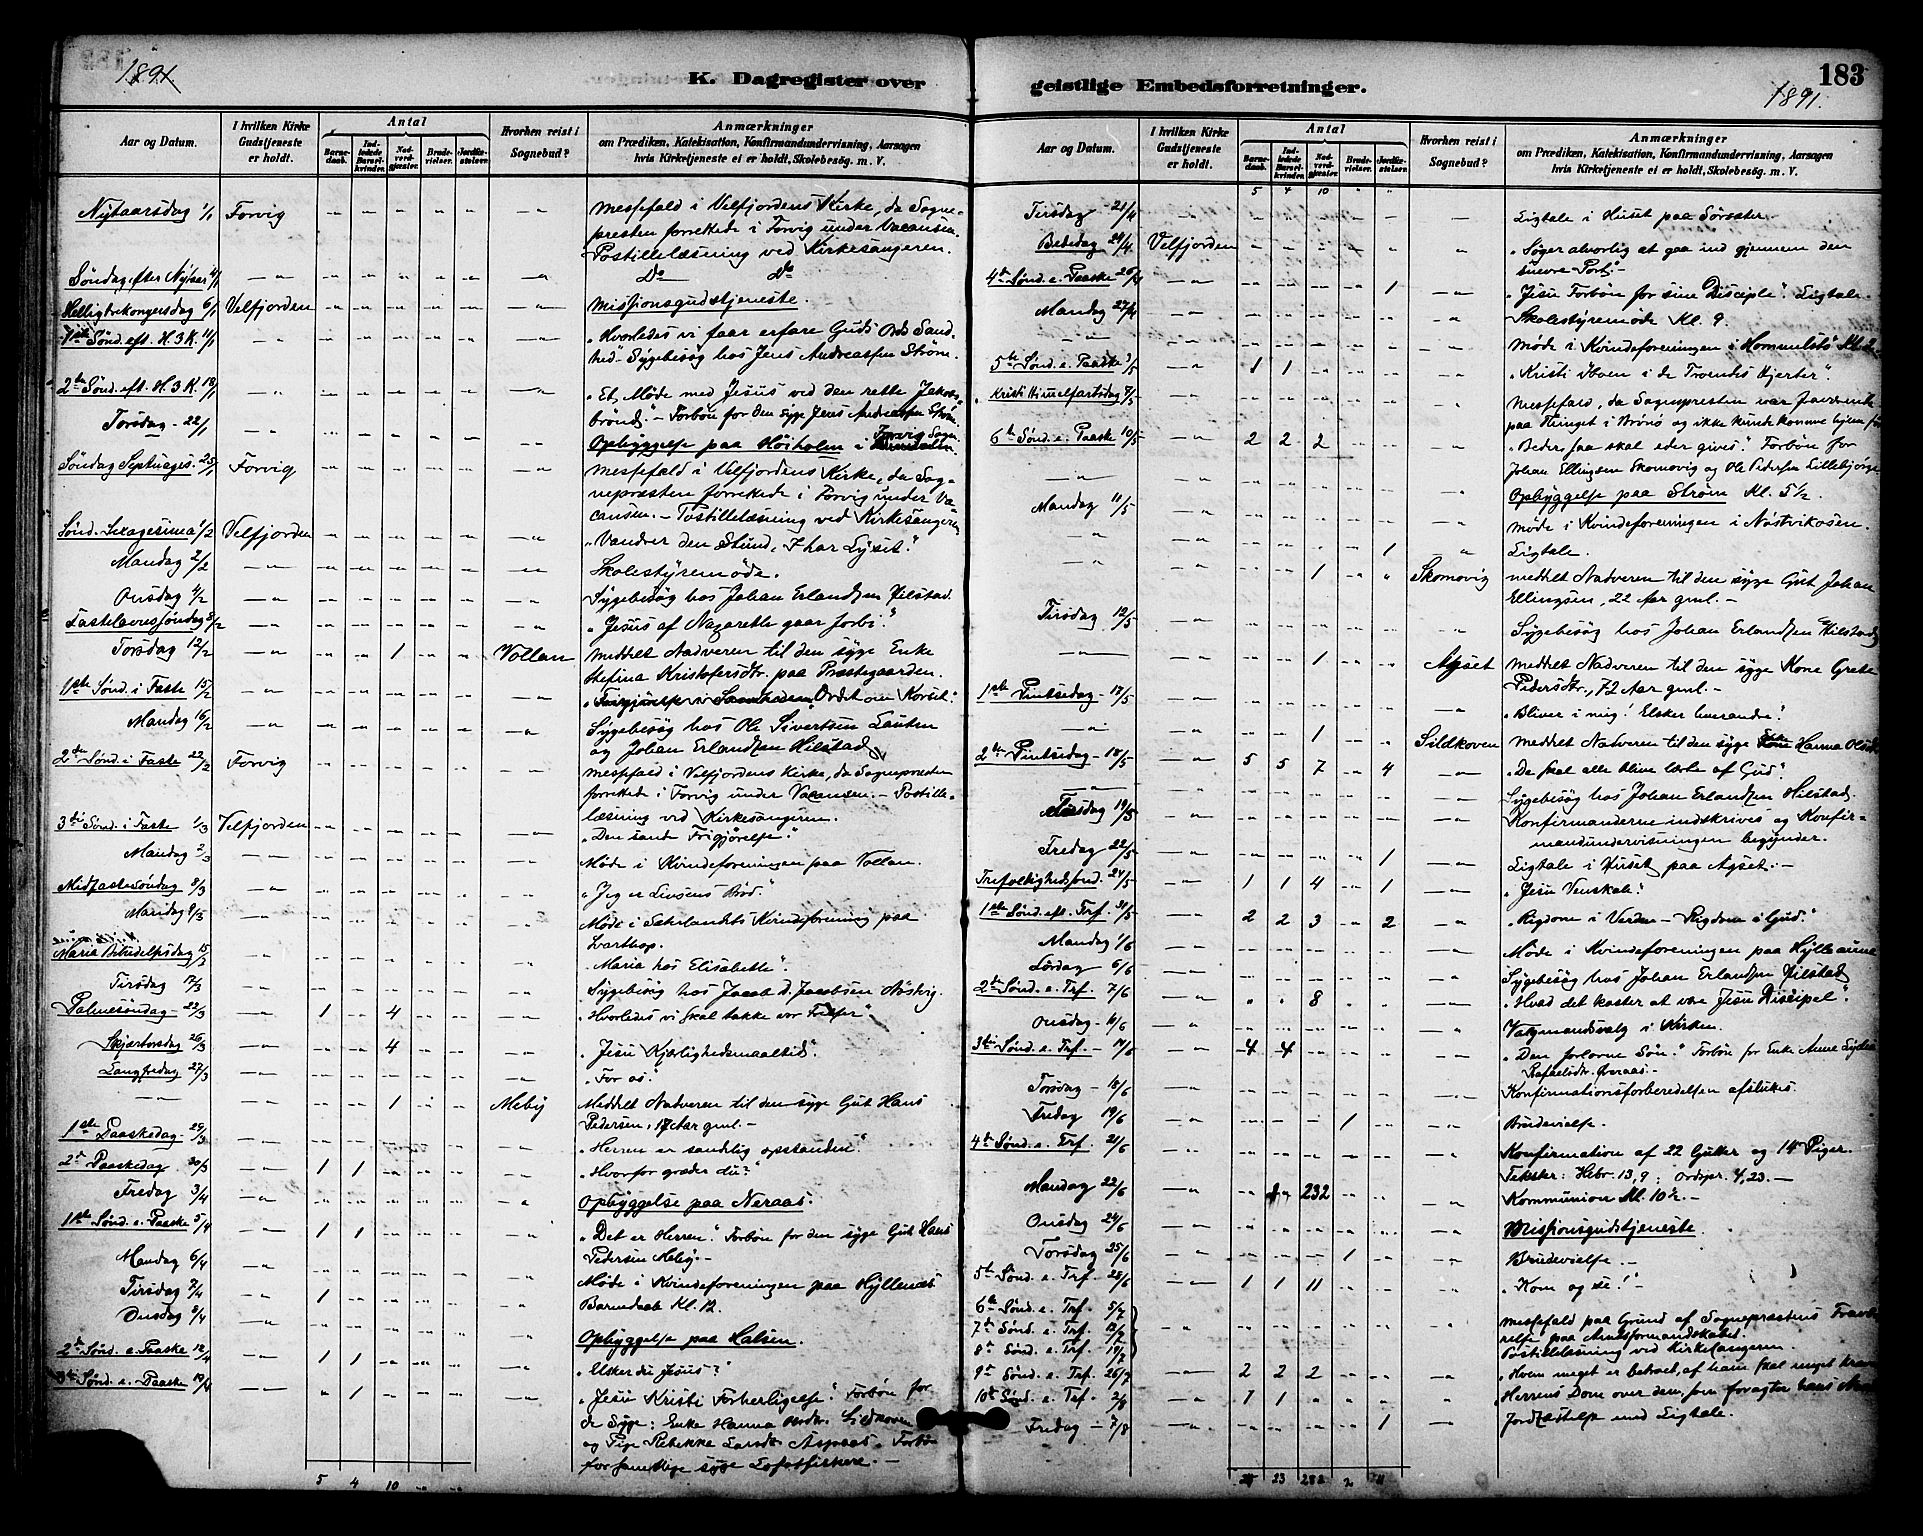 1891.
K. Dagregister over
Aar og Datum.
I hvilken Kirke Gudstjeneste er holdt.
Antal
Barnedaab.
Indledede Barselkvinder.
Nadverdgjæster.
Brudevielser.
Jordfæstelser.
Hvorhen reist i Sognebud?
Anmærkninger
om Prædiken, Katekisation, Konfirmandundervisning, Aarsagen
hvis Kirketjeneste ei er holdt, Skolebesög. m. V.
Nytaarsdag 1/1 Forvig Messefald i Velfjordens Kirke, da Sogne-
presten forrettede i Forvig under Vacansen.
Postillelæsning ved Kirkesangeren.
Søndag efter Nytaar 4/1 Do Do
Helligtrekongersdag 6/1 Velfjorden Missionsgudstjeneste.
1ste Sønd. eft. H. 3 K. 11/1 „Hvorledes vi faar erfare Guds Ords Sand-
hed". Sygebesøg hos Jens Andreassen Strøm.
2den Sønd. eft. H. 3 K. 18/1 „Et Møde med Jesus ved den rette Jakobs-
brønd." - Forbøn for den syge Jens Andreassen Strøm.
Torsdag - 22/1 Opbyggelse paa Høiholm i Forvig Sogn.
Søndag Septuages. 25/1 Forvig Messefald i Velfjordens Kirke, da Sog-
nepræsten forrettede i Forvig under Va-
cansen. - Postillelæsning ved Kirkesangeren
Sønd. Sexagesima 1/2 Velfjorden „Vandrer den Stund, I har Lyset."
Mandag 2/2 Skolestyremøde.
Onsdag 4/2 Sygebesøg hos Johan Erlandsen Hilstad.
Fastelavnssøndag 8/2 „Jesus af Nazareth gaar forbi."
Torsdag 12/2 1 Vollan Meddelt Nadveren til den syge Enke
Stefina Kristofersdtr. paa Præstegaarden.
1ste Sønd. i Faste 15/2 Ordet om Korset."
Mandag 16/2 Sygebesøg hos Ole Sivertsen Lauten
og Johan Erlandsen Hilstad
2den Sønd. i Faste 22/2 Forvig Messefald i Velfjordens Kirke, da Sognepresten
forrettede i Forvig under Vacansen. - Postille-
læsning ved Kirkesangeren.
3die Sønd. i Faste 1/3 Velfjorden „Den sande Frigjørelse."
Mandag 2/3 Møde i Kvindeforeningen paa Vollan.
Midfastesøndag 8/3 „Jeg er Livsens Brød."
Mandag 9/3 Møde i Kvindeforening paa
Maria Bebudelsesdag 15/3 „Maria hos Elisabeth".
Tirsdag 17/3 Sygebesøg hos Jacob D. Jacobsen Nøstvig.
Palmesøndag - 22/3 1 4 „Hvorledes vi skal takke vor Frelser"
Skjærtorsdag 26/3 4 „Jesu Kjærlighedsmaaltid".
Langfredag 27/3 „For os."
1 Meby Meddelt Nadveren til den syge Gut Hans
Pedersen, 17 Aar gml. -
1ste Paaskedag - 29/3 „Herren er sandelig opstanden."
2d Paaskedag 30/3 1 1 „Hvorfor græder du?"
Fredag 3/4 Opbyggelse paa Neraas.
1ste Sønd. e. Paaske 5/4 1 1 „Det er Herren." Forbøn for den syge Gut Hans
Pedersen Meby. -
Mandag 6/4 Møde i Kvindeforeningen paa Hyllenæs
Tirsdag 7/4 1 Barnedaab Kl. 12.
Onsdag 8/4 Opbyggelse paa Halsen.
2den Sønd. e. Paaske 12/4 1 1 „Elsker du Jesus?"
3die Sønd. e. Paaske 19/4 1 „Jesu Kristi Forherligelse". Forbøn for
de Syge: Enke Hanna Sildkoven
og Pige Rebekka Larsdtr. Forbøn
for samtlige syge Lofotfiskere. -
5 4 10
183
1891.
geistlige Embedsforretninger.
Aar og Datum.
I hvilken Kirke Gudstjeneste er holdt.
Antal
Barnedaab.
Indledede Barselkvinder.
Nadverdgjæster.
Brudevielser.
Jordfæstelser.
Hvorhen reist i Sognebud?
Anmærkninger
om Prædiken, Katekisation, Konfirmandundervisning, Aarsagen
hvis Kirketjeneste ei er holdt, Skolebesög. m. V.
5 4 10
Tirsdag 21/4 Ligtale i Huset paa Sørsæter
Bededag 24/4 Velfjorden „Søger alvorlig at gaa ind gjennem den
snevre Port." -
4de Sønd. e. Paaske 26/4 1 „Jesu Forbøn for sine Disciple". Ligtale.
Mandag 27/4 Skolestyremøde Kl. 9.
Møde i Kvindeforeningen i Hommelstø
5te Sønd. e. Paaske 3/5 1 1 „Kristi Iboen i de Troendes Hjerter".
Kristi Himmelfartsdag 7/5 Messefald, da Sognepresten var
paa Thinget i Brønø og ikke kunde komme hjem
6te Sønd. e. Paaske 10/5 2 2 2 „Beder, saa skal eder gives". Forbøn for
Johan Ellingsen Skomovig og Ole Pedersen Lillebjørge
Opbyggelse paa Strøm Kl. 5 1/2.
Mandag 11/5 Møde i Kvindeforeningen i Nøstvikosen.
1 Ligtale.
1 Skomovig Meddelt Nadveren til den syge Gut Johan
Ellingsen, 22 Aar gml. -
Tirsdag 12/5 Sygebesøg hos Johan Erlandsen Hilstad
1 Ayset Meddelt Nadveren til den syge Kone Grete
Pedersdtr., 72 Aar gml. -
1ste Pintsedag - 17/5 „Bliver i mig! Elsker hverandre!"
1 Sildkoven Meddelt Nadveren til den syge Enke Hanna
2den Pintsedag - 18/5 5 5 7 4 „De skal alle blive lærte af Gud."
Sygebesøg hos Johan Erlandsen Hilstad
Tirsdag 19/5 Konfirmanderne indskrives og Konfir-
mandundervisningen begynder.
Fredag 22/5 1 Ligtale i Huset paa Ayset. -
Trefoldighedssønd. 24/5 1 1 4 1 „Jesu Venskab."
1ste Sønd. eft. Trf. 31/5 2 2 3 2 „Rigdom i Verden - Rigdom i Gud."
Mandag 1/6 Møde i Kvindeforeningen paa
Lørdag 6/6 Sygebesøg hos Johan Erlandsen Hilstad
2den Sønd. e. Trf. 7/6 8 „Hvad det koster at være Jesu Discipel".
Onsdag - 10/6 Valgmandsvalg i Kirken.
3die Sønd. e. Trf. - 14/6 4 4 „Den forlorne Søn." Forbøn for Enke Anne
Torsdag - 18/6 Konfirmationsforberedelsen afsluttes
Fredag 19/6 1 Brudevielse.
4de Sønd. e. Trf. 21/6 Konfirmation af 22 Gutter og 14 Piger.
Tekster: Hebr. 13,9; Ordspr. 4,23. -
Mandag 22/6 232 Kommunion Kl. 10 1/2. -
Onsdag 24/6 Missionsgudstjeneste
Torsdag 25/6 1 Brudevielse.
5te Sønd. e. Trf. 28/6 1 1 11 „Kom og se!"
6te Sønd. e. Trf. 5/7
7de Sønd. e. Trf. 12/7 Messefald paa Grund af Sognepræstens Fravæ-
relse paa Amtsformandskabet.
8de Sønd. e. Trf. 19/7 Postillelæsning ved Kirkesangeren.
9de Sønd. e. Trf. 26/7 2 2 2 „Hvem meget er betroet, af ham skal meget
10de Sønd. e. Trf. 2/8 1 1 Herrens Dom over dem, som foragter hans
Fredag - 7/8 1 Jordfæstelse med Ligtale.
23 282 2 11